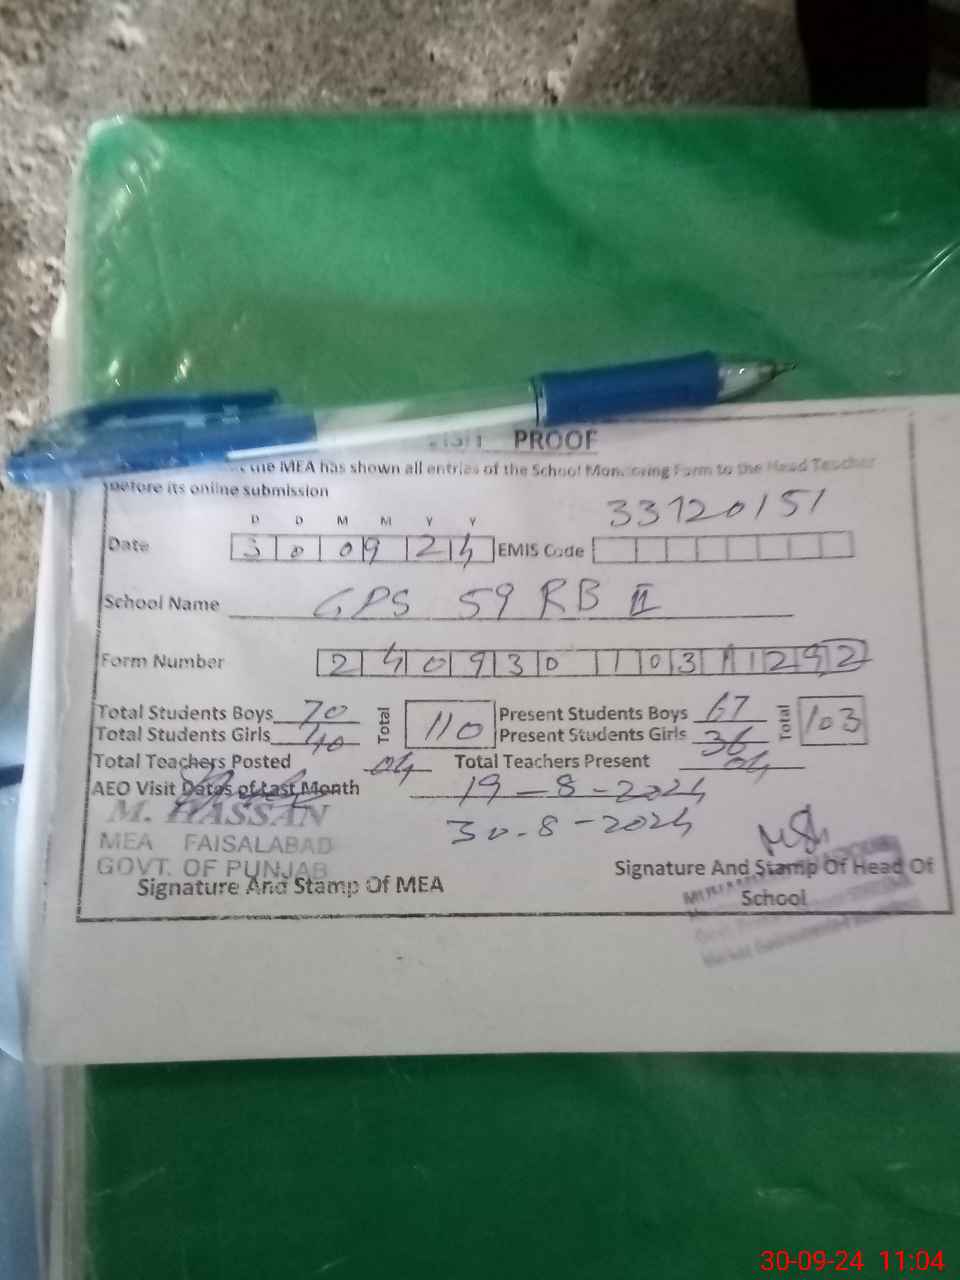 PROOF
the MEA has shown all entries of the School Monitoring Form to the Head Teacher
before its online submission
D D M M Y Y
33120151
Date 30 09 24 EMIS Code
School Name GPS 59 RB II
Form Number 240930 103
Total Students Boys 70 Total 110 Present Students Boys 67 Total 103
Total Students Girls 40 Present Students Girls 36
Total Teachers Posted 04 Total Teachers Present 04
AEO Visit Dates of Last Month 19-8-2024
30-8-2024
M. HASSAN
MEA FAISALABAD
GOVT. OF PUNJAB
Signature And Stamp Of MEA
Signature And Stamp Of Head Of
School
30-09-24 11:04